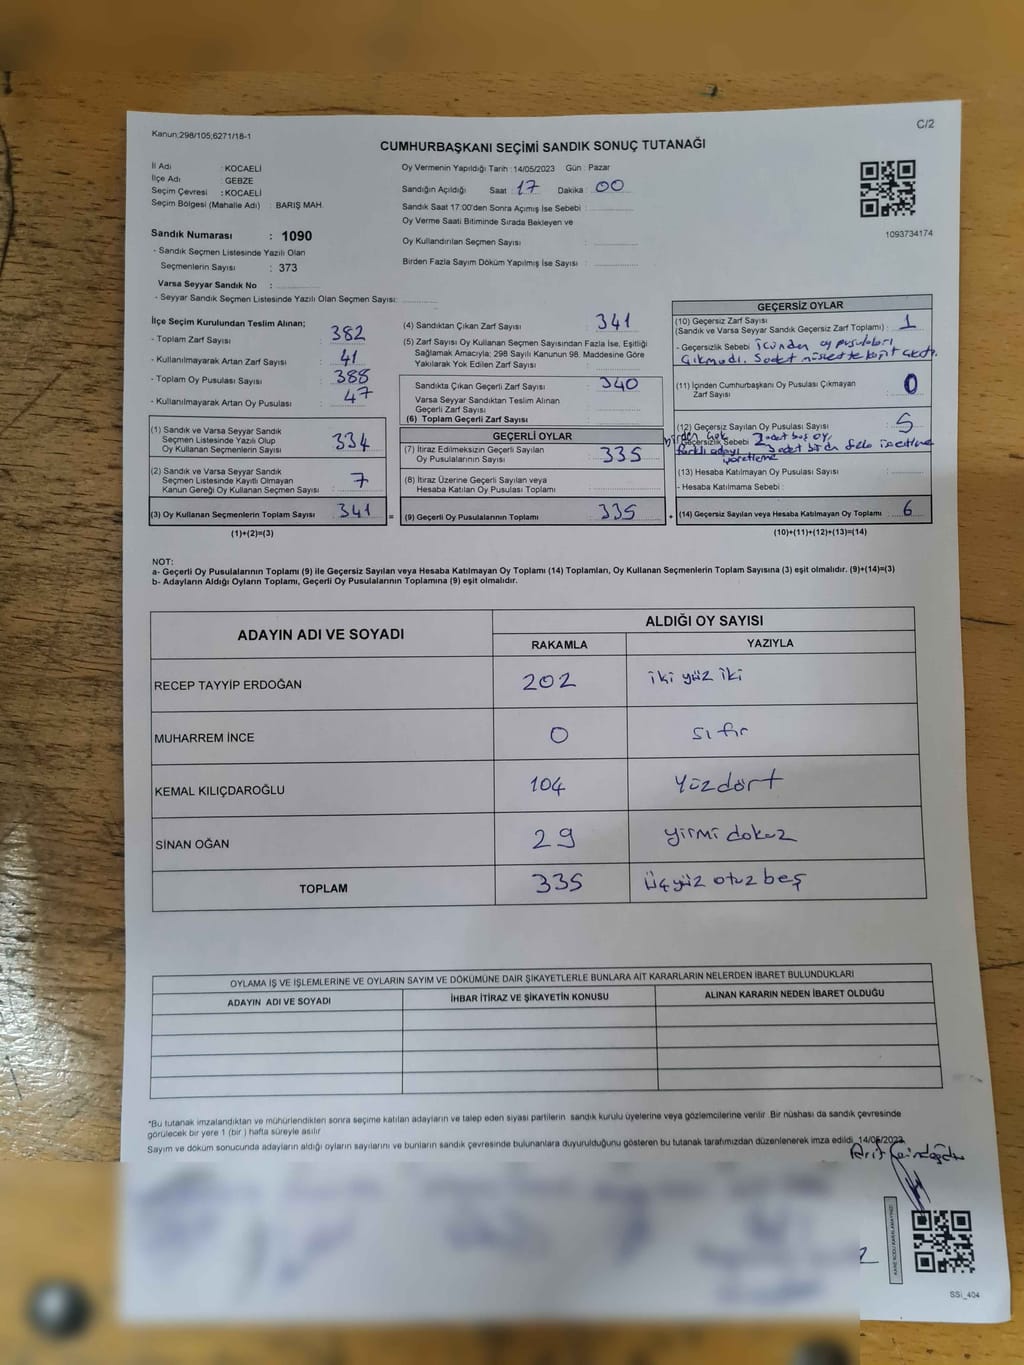 Kanun;298/105;6271/18-1
C/2
CUMHURBAŞKANI SEÇİMİ SANDIK SONUÇ TUTANAĞI
İl Adı : KOCAELİ
İlçe Adı : GEBZE
Seçim Çevresi : KOCAELİ
Seçim Bölgesi (Mahalle Adı) : BARIŞ MAH.
Sandık Numarası : 1090
- Sandık Seçmen Listesinde Yazılı Olan
Seçmenlerin Sayısı : 373
Varsa Seyyar Sandık No :
- Seyyar Sandık Seçmen Listesinde Yazılı Olan Seçmen Sayısı:
Oy Vermenin Yapıldığı Tarih :14/05/2023 Gün : Pazar
Sandığın Açıldığı Saat : 17 Dakika : 00
Sandık Saat 17:00'den Sonra Açımış İse Sebebi :
Oy Verme Saati Bitiminde Sırada Bekleyen ve
Oy Kullandırılan Seçmen Sayısı :
Birden Fazla Sayım Döküm Yapılmış İse Sayısı :
1093734174
İlçe Seçim Kurulundan Teslim Alınan;
- Toplam Zarf Sayısı : 382
- Kullanılmayarak Artan Zarf Sayısı : 41
- Toplam Oy Pusulası Sayısı : 388
- Kullanılmayarak Artan Oy Pusulası : 47
(1) Sandık ve Varsa Seyyar Sandık
Seçmen Listesinde Yazılı Olup
Oy Kullanan Seçmenlerin Sayısı : 334
(2) Sandık ve Varsa Seyyar Sandık
Seçmen Listesinde Kayıtlı Olmayan
Kanun Gereği Oy Kullanan Seçmen Sayısı : 7
(3) Oy Kullanan Seçmenlerin Toplam Sayısı : 341 =
(1)+(2)=(3)
(4) Sandıktan Çıkan Zarf Sayısı : 341
(5) Zarf Sayısı Oy Kullanan Seçmen Sayısından Fazla İse, Eşitliği
Sağlamak Amacıyla; 298 Sayılı Kanunun 98. Maddesine Göre
Yakılarak Yok Edilen Zarf Sayısı :
Sandıkta Çıkan Geçerli Zarf Sayısı : 340
Varsa Seyyar Sandıktan Teslim Alınan
Geçerli Zarf Sayısı :
(6) Toplam Geçerli Zarf Sayısı :
GEÇERLİ OYLAR
(7) İtiraz Edilmeksizin Geçerli Sayılan
Oy Pusulalarının Sayısı : 335
(8) İtiraz Üzerine Geçerli Sayılan veya
Hesaba Katılan Oy Pusulası Toplamı :
(9) Geçerli Oy Pusulalarının Toplamı : 335 +
GEÇERSİZ OYLAR
(10) Geçersiz Zarf Sayısı
(Sandık ve Varsa Seyyar Sandık Geçersiz Zarf Toplamı) : 1
- Geçersizlik Sebebi : içinden oy pusulaları
Çıkmadı.
(11) İçinden Cumhurbaşkanı Oy Pusulası Çıkmayan
Zarf Sayısı : 0
(12) Geçersiz Sayılan Oy Pusulası Sayısı : 5
Geçersizlik Sebebi 2 adet boş oy,
(13) Hesaba Katılmayan Oy Pusulası Sayısı :
- Hesaba Katılmama Sebebi :
(14) Geçersiz Sayılan veya Hesaba Katılmayan Oy Toplamı : 6
(10)+(11)+(12)+(13)=(14)
NOT:
a- Geçerli Oy Pusulalarının Toplamı (9) ile Geçersiz Sayılan veya Hesaba Katılmayan Oy Toplamı (14) Toplamları, Oy Kullanan Seçmenlerin Toplam Sayısına (3) eşit olmalıdır. (9)+(14)=(3)
b- Adayların Aldığı Oyların Toplamı, Geçerli Oy Pusulalarının Toplamına (9) eşit olmalıdır.
ADAYIN ADI VE SOYADI
ALDIĞI OY SAYISI
RAKAMLA YAZIYLA
RECEP TAYYİP ERDOĞAN 202 iki yüz iki
MUHARREM İNCE 0 sıfır
KEMAL KILIÇDAROĞLU 104 Yüzdört
SİNAN OĞAN 29 yirmi dokuz
TOPLAM 335 Üçyüz otuz beş
OYLAMA İŞ VE İŞLEMLERİNE VE OYLARIN SAYIM VE DÖKÜMÜNE DAİR ŞİKAYETLERLE BUNLARA AİT KARARLARIN NELERDEN İBARET BULUNDUKLARI
ADAYIN ADI VE SOYADI İHBAR İTİRAZ VE ŞİKAYETİN KONUSU ALINAN KARARIN NEDEN İBARET OLDUĞU
*Bu tutanak imzalandıktan ve mühürlendikten sonra seçime katılan adayların ve talep eden siyasi partilerin sandık kurulu üyelerine veya gözlemcilerine verilir. Bir nüshası da sandık çevresinde
görülecek bir yere 1 (bir ) hafta süreyle asılır
Sayım ve döküm sonucunda adayların aldığı oyların sayılarını ve bunların sandık çevresinde bulunanlara duyurulduğunu gösteren bu tutanak tarafımızdan düzenlenerek imza edildi. 14/05/2023
KARE KODU KARALAMAYINIZ!
SSİ_404